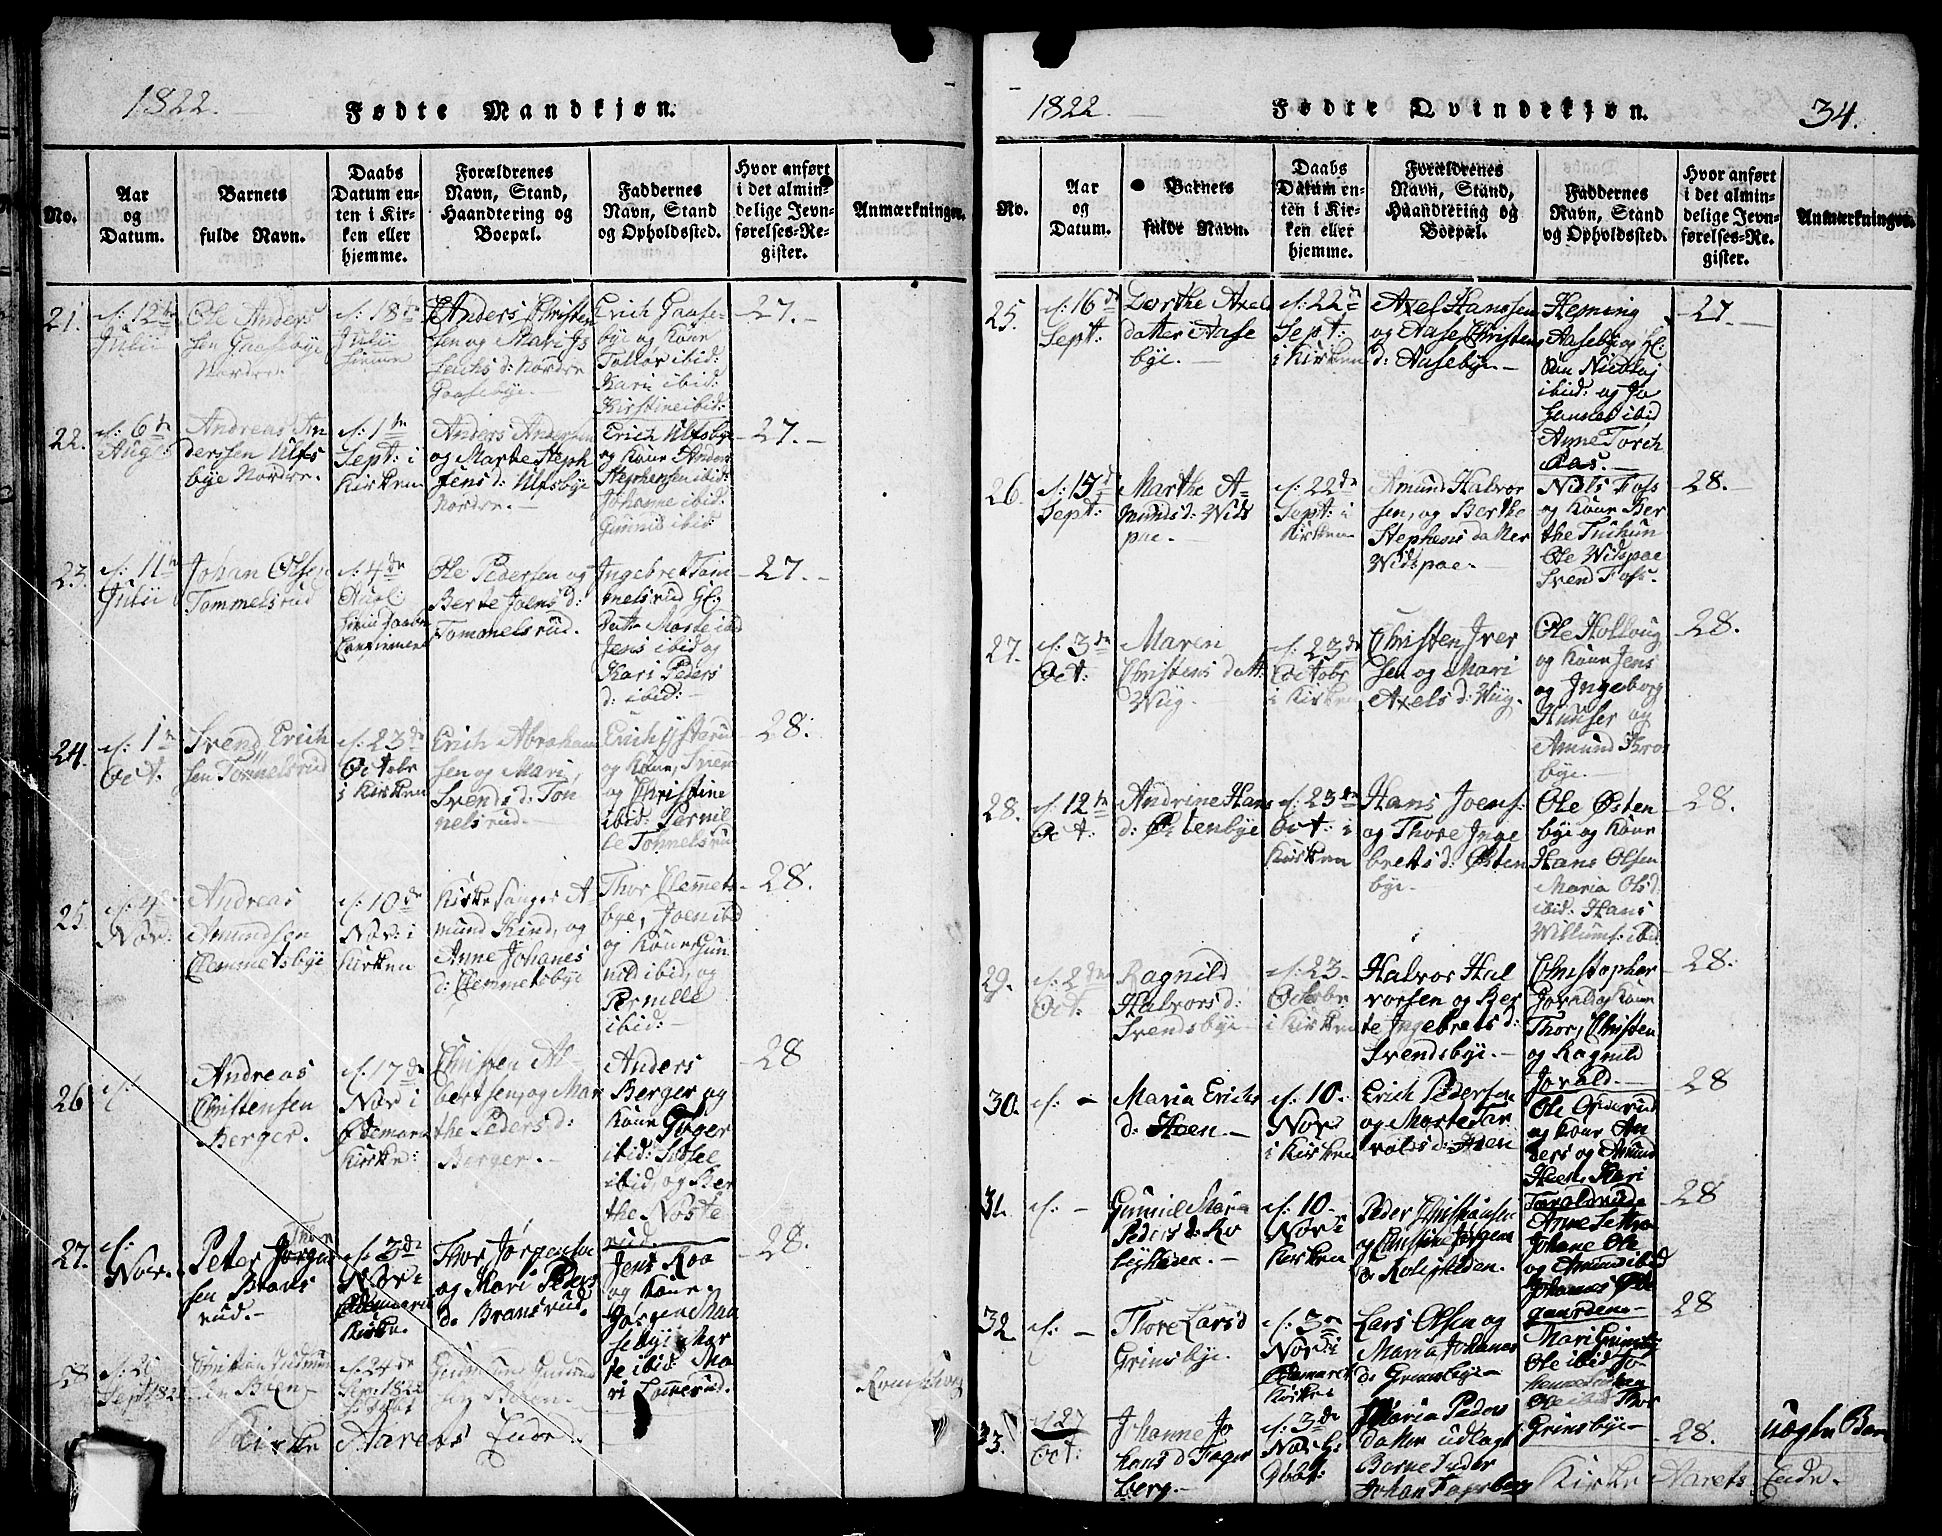 1822.
Fødte Mandkjøn.
No.
Aar
og
Datum.
Barnets
fulde Navn.
Daabs
Datum en-
ten i Kir-
ken eller
hjemme.
Forældrenes
Navn, Stand,
Haandtering og
Boepæl.
Faddernes
Navn, Stand
og Opholdssted.
Hvor anført
i det almin-
delige Jevn-
førelses-Re-
gister.
Anmærkninger.
21.
d: 12te
Julii
Ole Anders
sen Gaasebye
Nordre.
d: 18de
Julii
hjemme
Anders Christen
sen og Mari
d: Nordre
Gaasebye.
Erich Gaase-
bye og Kone
ibid:
Kari ibid:
Kirstine ibid:
27.
22.
d: 6te
Aug:
Andreas An
derssen Ulfs
bye Nordre.
d: 1te
Sept: i
Kirken
Anders Andersen
og Marte Steph
sens d: Ulfsbye
Nordre.
Erich Ulfsbye
og Kone Anders
Stephensen ibid:
Johanne ibid:
Gunnild ibid:
27.
23.
d: 11te
Julii
Johan Olsen
Tommelsrud
d: 4de
Aug:
Confirmeret
Ole Pedersen og
Berte Joens d:
Tommelsrud.
Ingebret Tom
melsrud Gl:
Datter Marte ibid
Jens ibid og
Kari Peders
d: ibid:
27.
24.
d: 1te
Oct.
Svend Erich
sen Tommelsrud
d: 23de
Octobr
i Kirken
Erich Abraham
sen og Mari
Svends d: Tom
melsrud.
Erich
og Kone, Svend
og Christine
ibid: Pernil
le Tommelsrud
28.
25.
d: 4de
Nov:
Andreas
Amundsen
Clemmetsbye
d: 10de
Nov: i
Kirken
Kirkesanger A-
mund Kind, og
Anne Johanes
d: Clemmetsbye
Thor Clemmets-
bye, Joen ibid
og Kone Gun
nild ibid, og
Pernille
ibid:
28.
26
d:
Andreas
Christensen
Berger.
d: 17de
Nov i
Ødemark
Kirke:
Christen Al-
bertsen, og Mar
the Peders d:
Berger.
Anders
Berger og
Kone
ibid:
ibid, og Ber
the Noste
rud.
28
27.
d:
Nov.
Peter Thor
Jørgen
sen Brans
rud.
d: 3de
Nov i
Ødemark
Kirke.
Thor Jørgensen
og Mari Peders
d: Bransrud.
Jens Roa
og Kone,
Jørgen Maa
sebye, Mar
te ibid Ma
ri Lommerud.
28.
28
d: 20
Sept: 1822
Christian Gudmun
sen Bøen
d: 24de
Sep: 1822
Gudmund
og Bøen
Kirke Aarets Ende.
1822
Fødte Qvindekjøn.
34.
No.
Aar
og
Datum.
Barnets
fulde Navn.
Daabs
Datum en-
ten i Kir-
ken eller
hjemme.
Forældrenes
Navn, Stand,
Haandtering og
Boepæl.
Faddernes
Navn, Stand
og Opholdssted.
Hvor anført
i det almin-
delige Jevn-
førelses-Re-
gister.
Anmærkninger.
25.
d: 16de
Sept:
Dorthe Axels
datter Aase
bye.
d: 22de
Sept:
i Kirken
Axel Hanssen
og Aase Christens
d: Aasebye.
Heming
Aasebye og Gl:
Nicolaj
ibid: og Jo
hannes ibid
Anne Torch
Aas.
27
26.
d: 15de
Sept:
Marthe A-
munds d: Wids
pae.
d: 22de
Sept: i
Kirken
Amund Halvor
sen, og Berthe
Stephens datter
Widspae.
Niels Foss
og Kone Ber
the
Ole Widspae
Svend Foss.
28.
27.
d: 3de
Oct:
Maren
Christens datt:
Wüg.
d: 23de
Octobr
i Kirken
Christen Iver
sen og Mari
Axels d: Wüg.
Ole Kolloug
og Kone Jens
og Ingeborg
og
Amund Kros
bye.
28.
28.
d: 12te
Oct:
Andrine Hans
d: Østenbye
d: 23de
Oct: i
Kirken
Hans Joens:
og Thore Inge
brets d: Østen
bye.
Ole Østen
bye og Kone
Hans Olsen
Maria Ols d:
ibid: Hans
Willums: ibid
28.
29.
d: 2den
Oct:
Ragnild
Halvors d:
Svendsbye
d: 23
Octobr
i Kirken
Halvor Hal
vorsen og Ber
te Ingebrets d:
Svendsbye.
Christopher
Jorald og Kone
Thor, Christen
og Ragnild
Jorald.
28.
30.
d: -
Maria Erichs
d: Heen.
d: 10.
Nov:
i Kirken
Erich Pedersen
og Marte Tar
valds d: Heen
Ole
og Kone An
ders og Amund
Heen, Kari
Taraldsrud
28
31.
d: -
Gunnil Maria
Peders d: Ro
ligheden.
d: 10.
Nov i
Kirken
Peder Christiansen
og Christine Jørgens
d: Roligheden.
Anne
Johane Ole
og Amund ibid
Johannes Øde
gaardene
28
32
d: -
Thore Lars d
Grinsbye.
d: 3de
Nov: i
Ødemark
Kirke
Lars Olsen og
Maria Johanes
d: Grinsbye
Mari Grinsbye
Ole ibid
Ole ibid Thor
Grinsbye
28
33.
d: 27
Oct:
Johanne Jo
hans d Fager
berg.
d: 3de
Nov:
Maria Peders
datter udlagt
Barnefader
Johan Fagerberg
28.
uægte Barn
Kirke Aarets Ende.